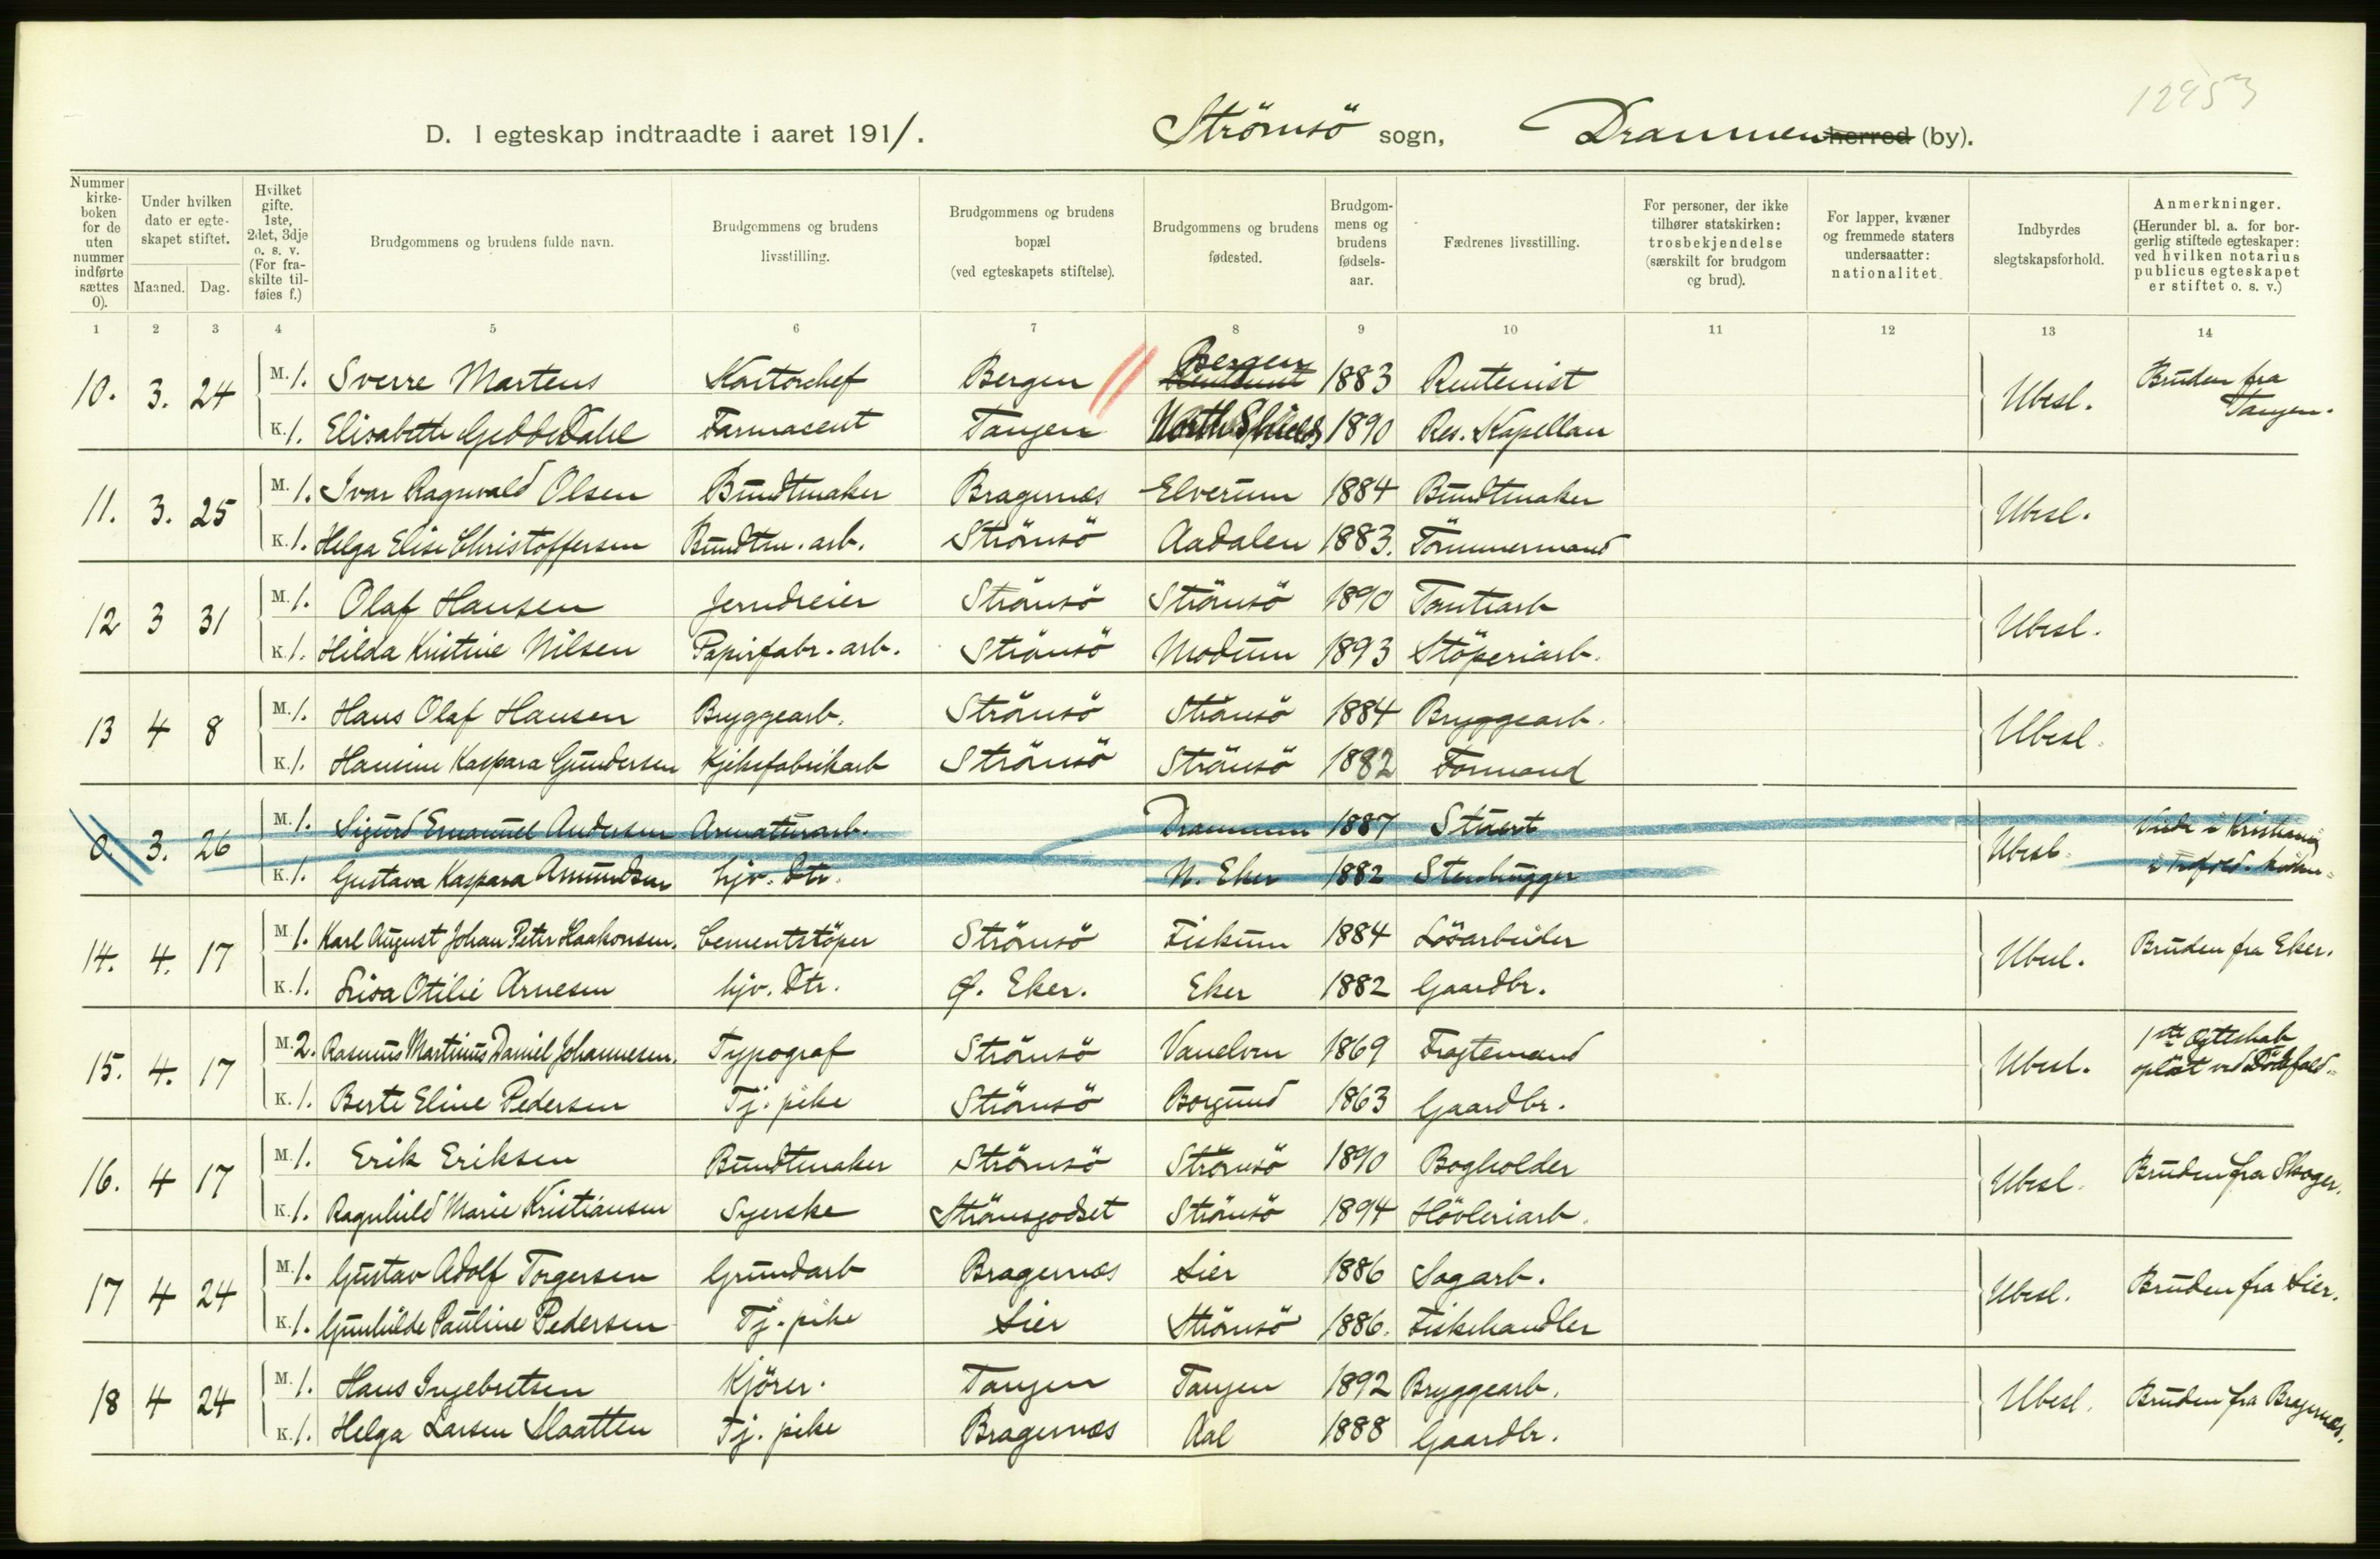 12953
D. I egteskap indtraadte i aaret 1911. Strömsö sogn, Drammen herred (by).
Nummer kirke-boken for de uten nummer indførte sættes 0).
Under hvilken dato er egte-skapet stiftet.
Maaned. Dag.
Hvilket gifte. 1ste, 2det, 3dje o. s. v. (For fra-skilte til-føies f.)
Brudgommens og brudens fulde navn.
Brudgommens og brudens livsstilling.
Brudgommens og brudens bopæl (ved egteskapets stiftelse).
Brudgommens og brudens fødested.
Brudgom-mens og brudens fødsels-aar.
Fædrenes livsstilling.
For personer, der ikke tilhører statskirken: trosbekjendelse (særskilt for brudgom og brud).
For lapper, kvæner og fremmede staters undersaatter: nationalitet.
Indbyrdes slegtskapsforhold.
Anmerkninger. (Herunder bl. a. for bor-gerlig stiftede egteskaper: ved hvilken notarius publicus egteskapet er stiftet o. s. v.)
1 2 3 4 5 6 7 8 9 10 11 12 13 14
10. 3. 24 M. 1. Sverre Martens Kontorchef Bergen Bergen 1883 Rentenist Ubesl. Bruden fra Tangen.
K. 1. Elisabeth Gedde Dahl Farmaceut Tangen North Shields 1890 Res. Kapellan
11. 3. 25 M. 1. Ivar Ragnvald Olsen Bundtmaker Bragernes Elverum 1884 Bundtmaker Ubesl.
K. 1. Helga Elise Christoffersen Bundtm. arb. Strömsö Aadalen 1883. Tömmermand
12 3 31 M. 1. Olaf Hansen Jerndreier Strömsö Strömsö 1890 Tomtearb Ubesl.
K. 1. Hilda Kristine Nilsen Papirfabr. arb. Strömsö Modum 1893 Stöperiarb.
13 4 8 M. 1. Hans Olaf Hansen Bryggearb. Strömsö Strömsö 1884 Bryggearb. Ubesl.
K. 1. Hansine Kaspara Gundersen Kjeksfabrikarb Strömsö Strömsö 1882 Formand
0. 3. 26 M. 1. Sigurd Emanuel Andersen Armaturarb. Drammen 1887 Stuert Ubesl. Viede i Kristiania
K. 1. Gustava Kaspara Amundsen hjv. Dtr. N. Eker 1882 Stenhugger
14. 4. 17 M. 1. Karl August Johan Peter Haakonsen. Cementstöper Strömsö Fiskum 1884 Lösarbeider Ubesl. Bruden fra Eker.
K. 1. Lisa Otilie Arnesen hjv. Dtr. Ø. Eker. Eker 1882 Gaardbr.
15. 4. 17 M. 2. Rasmus Martinus Daniel Johannesen. Typograf Strömsö Vanelven 1869 Fragtemand Ubesl. 1ste Ægteskab oplöst ved Dödsfald.
K. 1. Berte Eline Pedersen Tj. pike Strömsö Borgund 1863 Gaardbr.
16. 4 17 M. 1. Erik Eriksen Bundtmaker Strömsö Strömsö 1890 Bogholder Ubesl. Bruden fra Skoger.
K. 1. Ragnhild Marie Kristiansen Syerske Strömsgodset Strömsö 1894 Hövleriarb.
17 4 24 M. 1. Gustav Adolf Torgersen Grundarb Bragernæs Lier 1886 Sagarb. Ubesl. Bruden fra Lier.
K. 1. Gunhilde Pauline Pedersen Tj. pike Lier Strömsö 1886. Fiskehandler
18 4 24 M. 1. Hans Ingebretsen Kjörer. Tangen Tangen 1892 Bryggearb. Ubesl. Bruden fra Bragernæs.
K. 1. Helga Larsen Slaatten Tj. pike Bragernæs Aal 1888 Gaardbr.